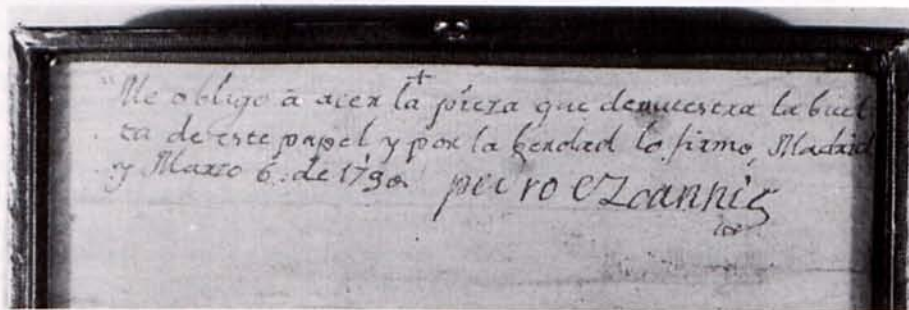 Me obligo â acer la pieza que demuestra la buel
ta de este papel y por la berdad lo firmo, Madrid
y Marzo 6. de 1790.
pedro